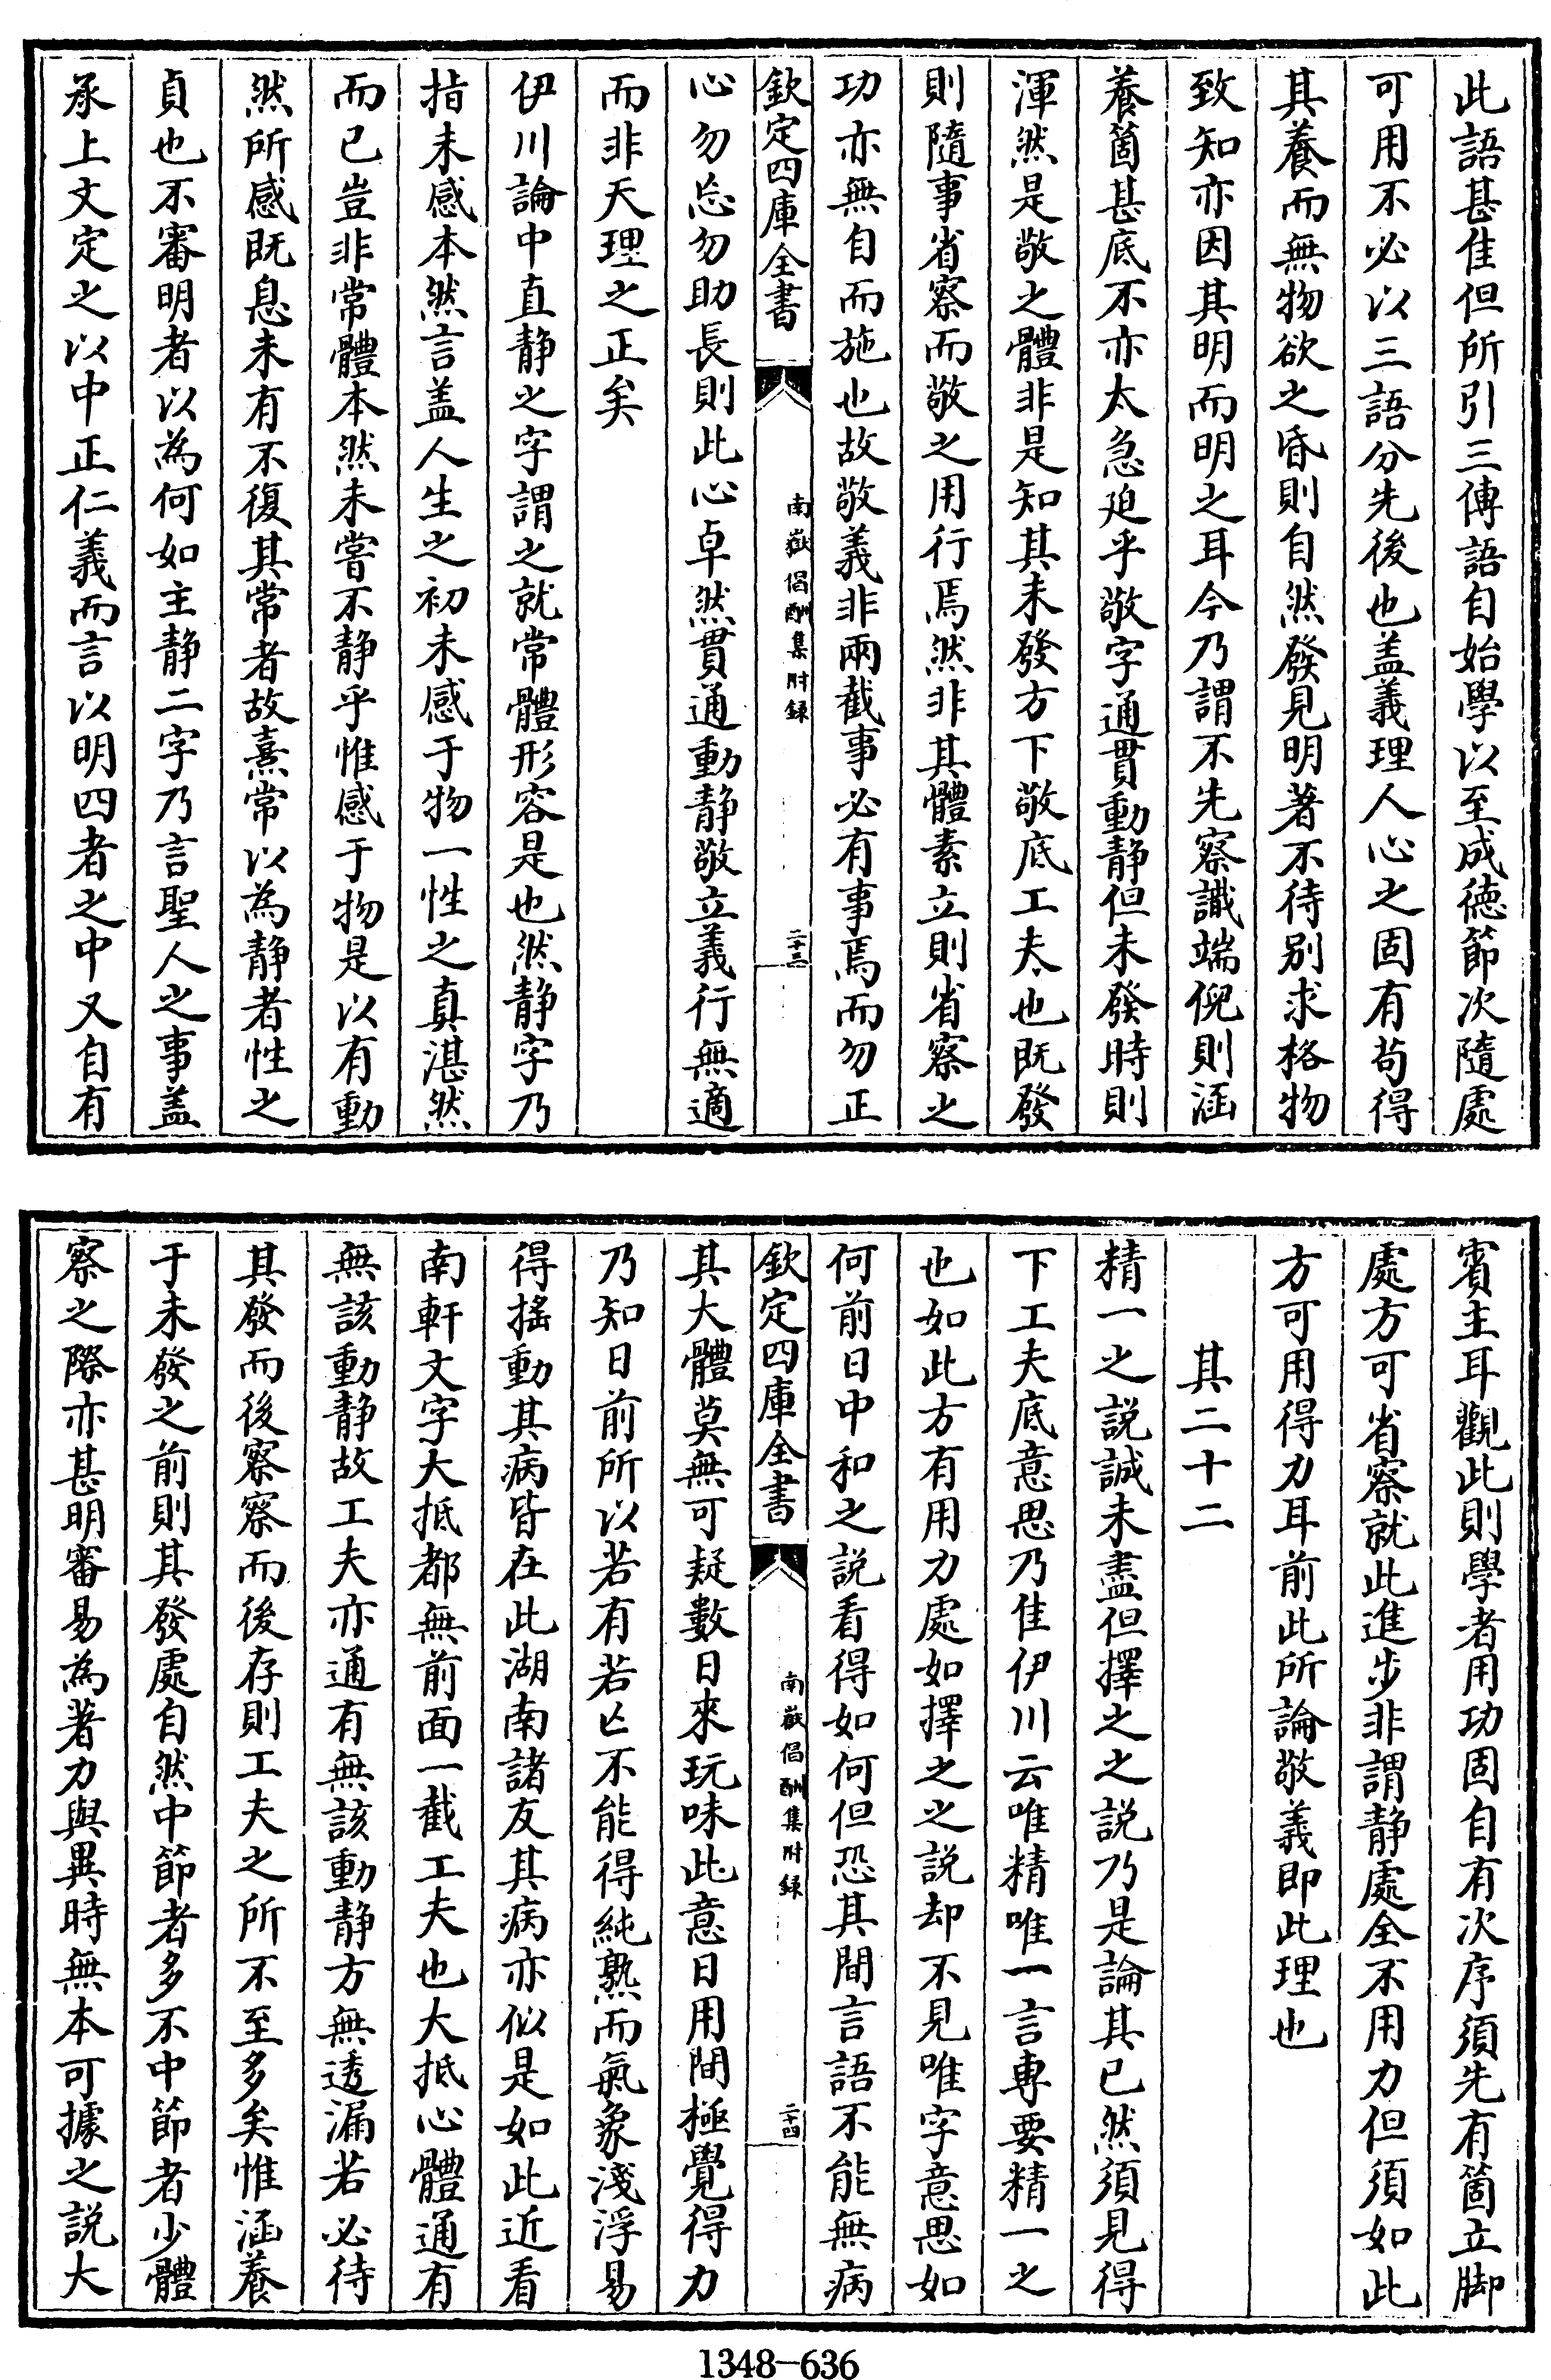 此語甚佳但所引三傳語自始學以至成徳節次隨處
可用不必以三語分先後也盖義理人心之固有苟得
其養而無物欲之昏則自然發見明著不待别求格物
致知亦因其明而明之耳今乃謂不先察識端倪則涵
養箇甚底不亦太急廹乎敬字通貫動静但未發時則
渾然是敬之體非是知其未發方下敬底工夫也既發
則隨事省察而敬之用行焉然非其體素立則省察之
功亦無自而施也故敬義非兩截事必有事焉而勿正
欽定四庫全書
南嶽倡酬集附録
二十三
心勿忘勿助長則此心卓然貫通動静敬立義行無適
而非天理之正矣
伊川論中直静之字謂之就常體形容是也然静字乃
指未感本然言盖人生之初未感于物一性之真湛然
而已豈非常體本然未嘗不静乎惟感于物是以有動
然所感既息未有不復其常者故熹常以為静者性之
貞也不審明者以為何如主静二字乃言聖人之事盖
承上文定之以中正仁義而言以明四者之中又自有
賓主耳觀此則學者用功固自有次序須先有箇立脚
處方可省察就此進步非謂静處全不用力但須如此
方可用得力耳前此所論敬義即此理也
其二十二
精一之説誠未盡但擇之之説乃是論其已然須見得
下工夫底意思乃佳伊川云唯精唯一言専要精一之
也如此方有用力處如擇之之説却不見唯字意思如
何前日中和之説看得如何但恐其間言語不能無病
欽定四庫全書
南嶽倡酬集附録
二十四
其大體莫無可疑數日來玩味此意日用間極覺得力
乃知日前所以若有若亡不能得純熟而氣象淺浮易
得搖動其病皆在此湖南諸友其病亦似是如此近看
南軒文字大抵都無前面一截工夫也大抵心體通有
無該動静故工夫亦通有無該動静方無透漏若必待
其發而後察察而後存則工夫之所不至多矣惟涵養
于未發之前則其發處自然中節者多不中節者少體
察之際亦甚明審易為著力與異時無本可據之説大
1348-636